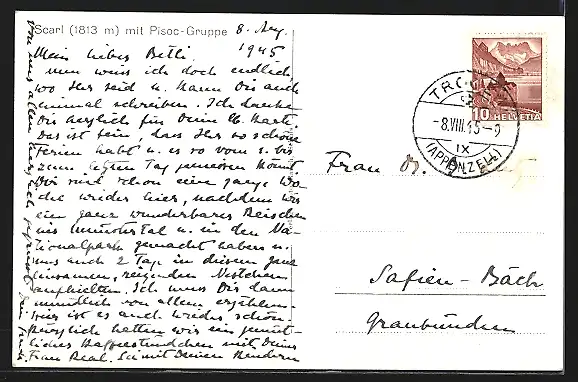 Scarl (1813 m) mit Pisoc-Gruppe
8. Aug.
1945
Mein liebes Betli.
nun weiss ich doch endlich,
wo Ihr seid u. kann Dir auch
einmal schreiben. Ich danke
Dir herzlich für Deine lb. Karte.
Das ist fein, dass Ihr so schöne
Ferien habt u. es so vom 1. bis
zum letzten Tag geniessen könnt.
Wir sind schon eine ganze Wo
che wieder hier, nachdem wir
ein ganz wunderbares Reischen
ins Münstertal u. in den Na-
tionalpark gemacht haben u.
uns auch 2 Tag in diesem ganz
einsamen, reizenden Nestchen
aufhielten. Ich muss Dir dann
mündlich von allem erzählen.
Hier ist es auch wieder schön.
Kürzlich hatten wir ein gemüt-
liches Kaffeestündchen mit Deiner
Frau Real. Sei mit Deinen Kindern
von uns allen herzlich gegrüsst
TROGEN
-8.VIII.45-9
IX
(APPENZELL)
10 HELVETIA
Frau Dr.
Safien-Bäch
Graubünden